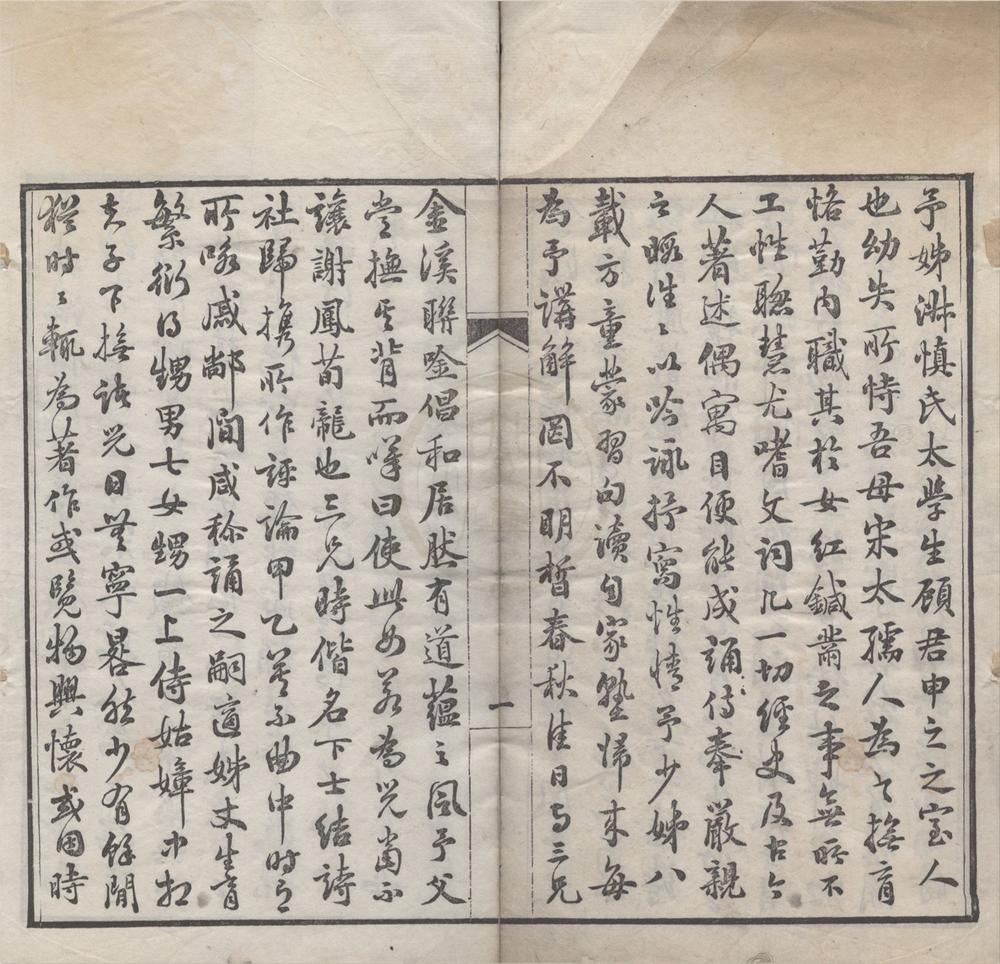 予姊淋慎氏太學生顾君申之之室人
也幼失所恃吾母宋太孺人為之撫育
恪勤内職其於女紅鍼黹之事無所不
工性聰慧尤嗜文詞凡一切經史及古今
人著述偶寓目便能成誦侍奉嚴親
之暇往〻以吟詠抒寫性情予少姊八
載方童蒙習句讀自家塾歸來每
為予講解罔不明晳春秋佳日与三兄
一
金溪聯唫倡和居然有道藴之風予父
嘗撫其背而嘆曰使此女若為兒當不
讓謝鳳荀龍也三兄時偕名下士結詩
社歸携所作評論甲乙並示曲中时有
所咯戚鄰间咸称誦之嗣適姊丈生育
繁衍得甥男七女甥一上侍姑嫜中相
夫子下撫諸兒日無寧晷然少有餘閒
於时〻輒為著作或覽物興懷或因時